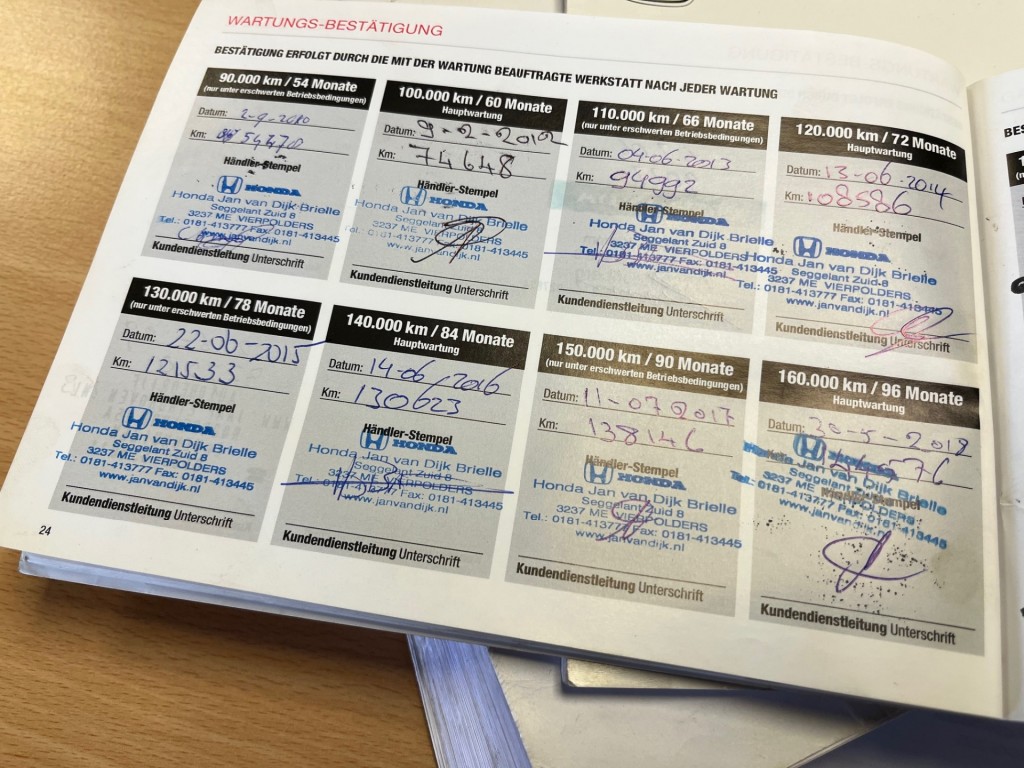 WARTUNGS-BESTÄTIGUNG
BESTÄTIGUNG ERFOLGT DURCH DIE MIT DER WARTUNG BEAUFTRAGTE WERKSTATT NACH JEDER WARTUNG
90.000 km / 54 Monate
(nur unter erschwerten Betriebsbedingungen)
Datum: 2-9-2010
Km: 54470
Händler-Stempel
HONDA
Honda Jan van Dijk Brielle
Seggelant Zuid 8
3237 ME VIERPOLDERS
Tel.: 0181-413777 Fax: 0181-413445
www.janvandijk.nl
Kundendienstleitung Unterschrift
100.000 km / 60 Monate
Hauptwartung
Datum: 9-2-2012
Km: 74648
Händler-Stempel
HONDA
Honda Jan van Dijk Brielle
Seggelant Zuid 8
3237 ME VIERPOLDERS
Tel.: 0181-413777 Fax: 0181-413445
www.janvandijk.nl
Kundendienstleitung Unterschrift
110.000 km / 66 Monate
(nur unter erschwerten Betriebsbedingungen)
Datum: 04-06-2013
Km: 94992
Händler-Stempel
HONDA
Honda Jan van Dijk Brielle
Seggelant Zuid 8
3237 ME VIERPOLDERS
Tel.: 0181-413777 Fax: 0181-413445
www.janvandijk.nl
Kundendienstleitung Unterschrift
120.000 km / 72 Monate
Hauptwartung
Datum: 13-06-2014
Km: 108586
Händler-Stempel
HONDA
Honda Jan van Dijk Brielle
Seggelant Zuid 8
3237 ME VIERPOLDERS
Tel.: 0181-413777 Fax: 0181-413445
www.janvandijk.nl
Kundendienstleitung Unterschrift
130.000 km / 78 Monate
(nur unter erschwerten Betriebsbedingungen)
Datum: 22-06-2015
Km: 121533
Händler-Stempel
HONDA
Honda Jan van Dijk Brielle
Seggelant Zuid 8
3237 ME VIERPOLDERS
Tel.: 0181-413777 Fax: 0181-413445
www.janvandijk.nl
Kundendienstleitung Unterschrift
140.000 km / 84 Monate
Hauptwartung
Datum: 14-06/2016
Km: 130623
Händler-Stempel
HONDA
Honda Jan van Dijk Brielle
Seggelant Zuid 8
3237 ME VIERPOLDERS
Tel.: 0181-413777 Fax: 0181-413445
www.janvandijk.nl
Kundendienstleitung Unterschrift
150.000 km / 90 Monate
(nur unter erschwerten Betriebsbedingungen)
Datum: 11-07-2017
Km: 138146
Händler-Stempel
HONDA
Honda Jan van Dijk Brielle
Seggelant Zuid 8
3237 ME VIERPOLDERS
Tel.: 0181-413777 Fax: 0181-413445
www.janvandijk.nl
Kundendienstleitung Unterschrift
160.000 km / 96 Monate
Hauptwartung
Datum: 30-5-2018
Km:
Jan van Dijk Brielle
www.janvandijk.nl
Kundendienstleitung Unterschrift
24